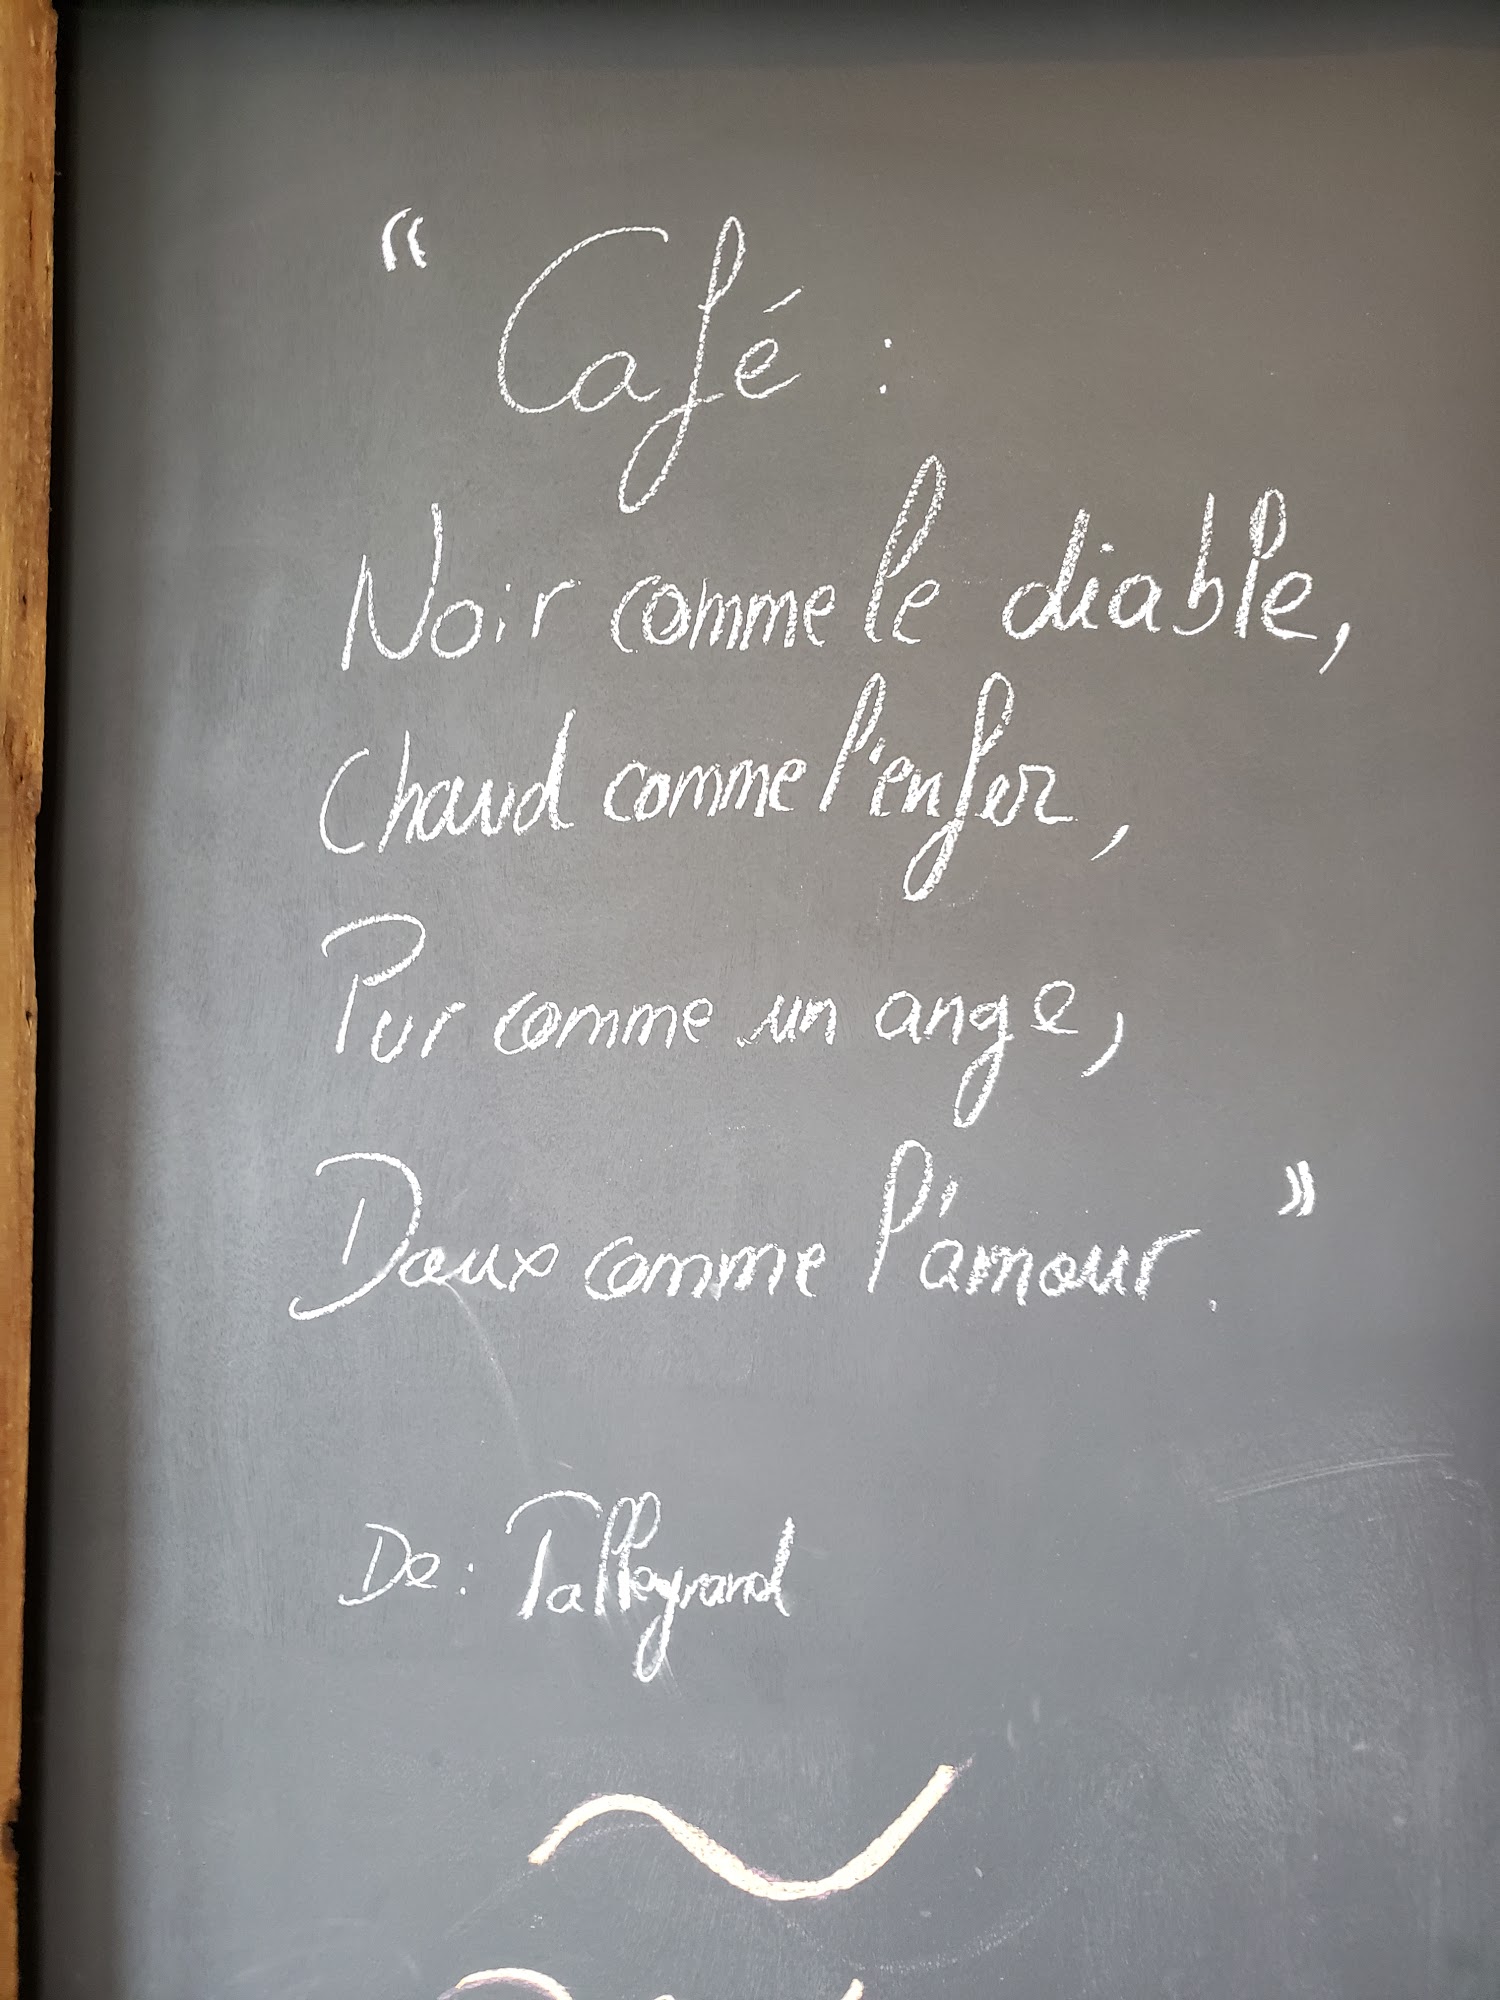 “ Café :
Noir comme le diable,
Chaud comme l'enfer,
Pur comme un ange,
Doux comme l'amour. ”
De : Talleyrand